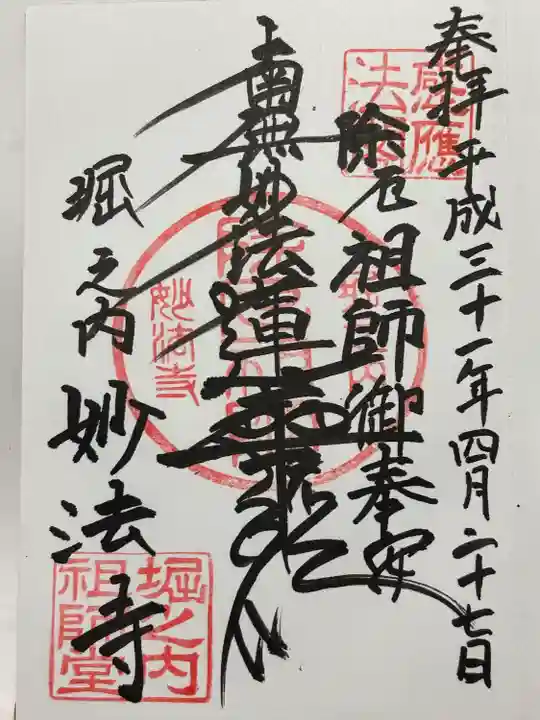 奉拝 平成三十一年四月二十七日
除厄祖師御奉安
南無妙法蓮華経
堀之内 妙法寺
感應
妙法寺
堀之内
祖師堂